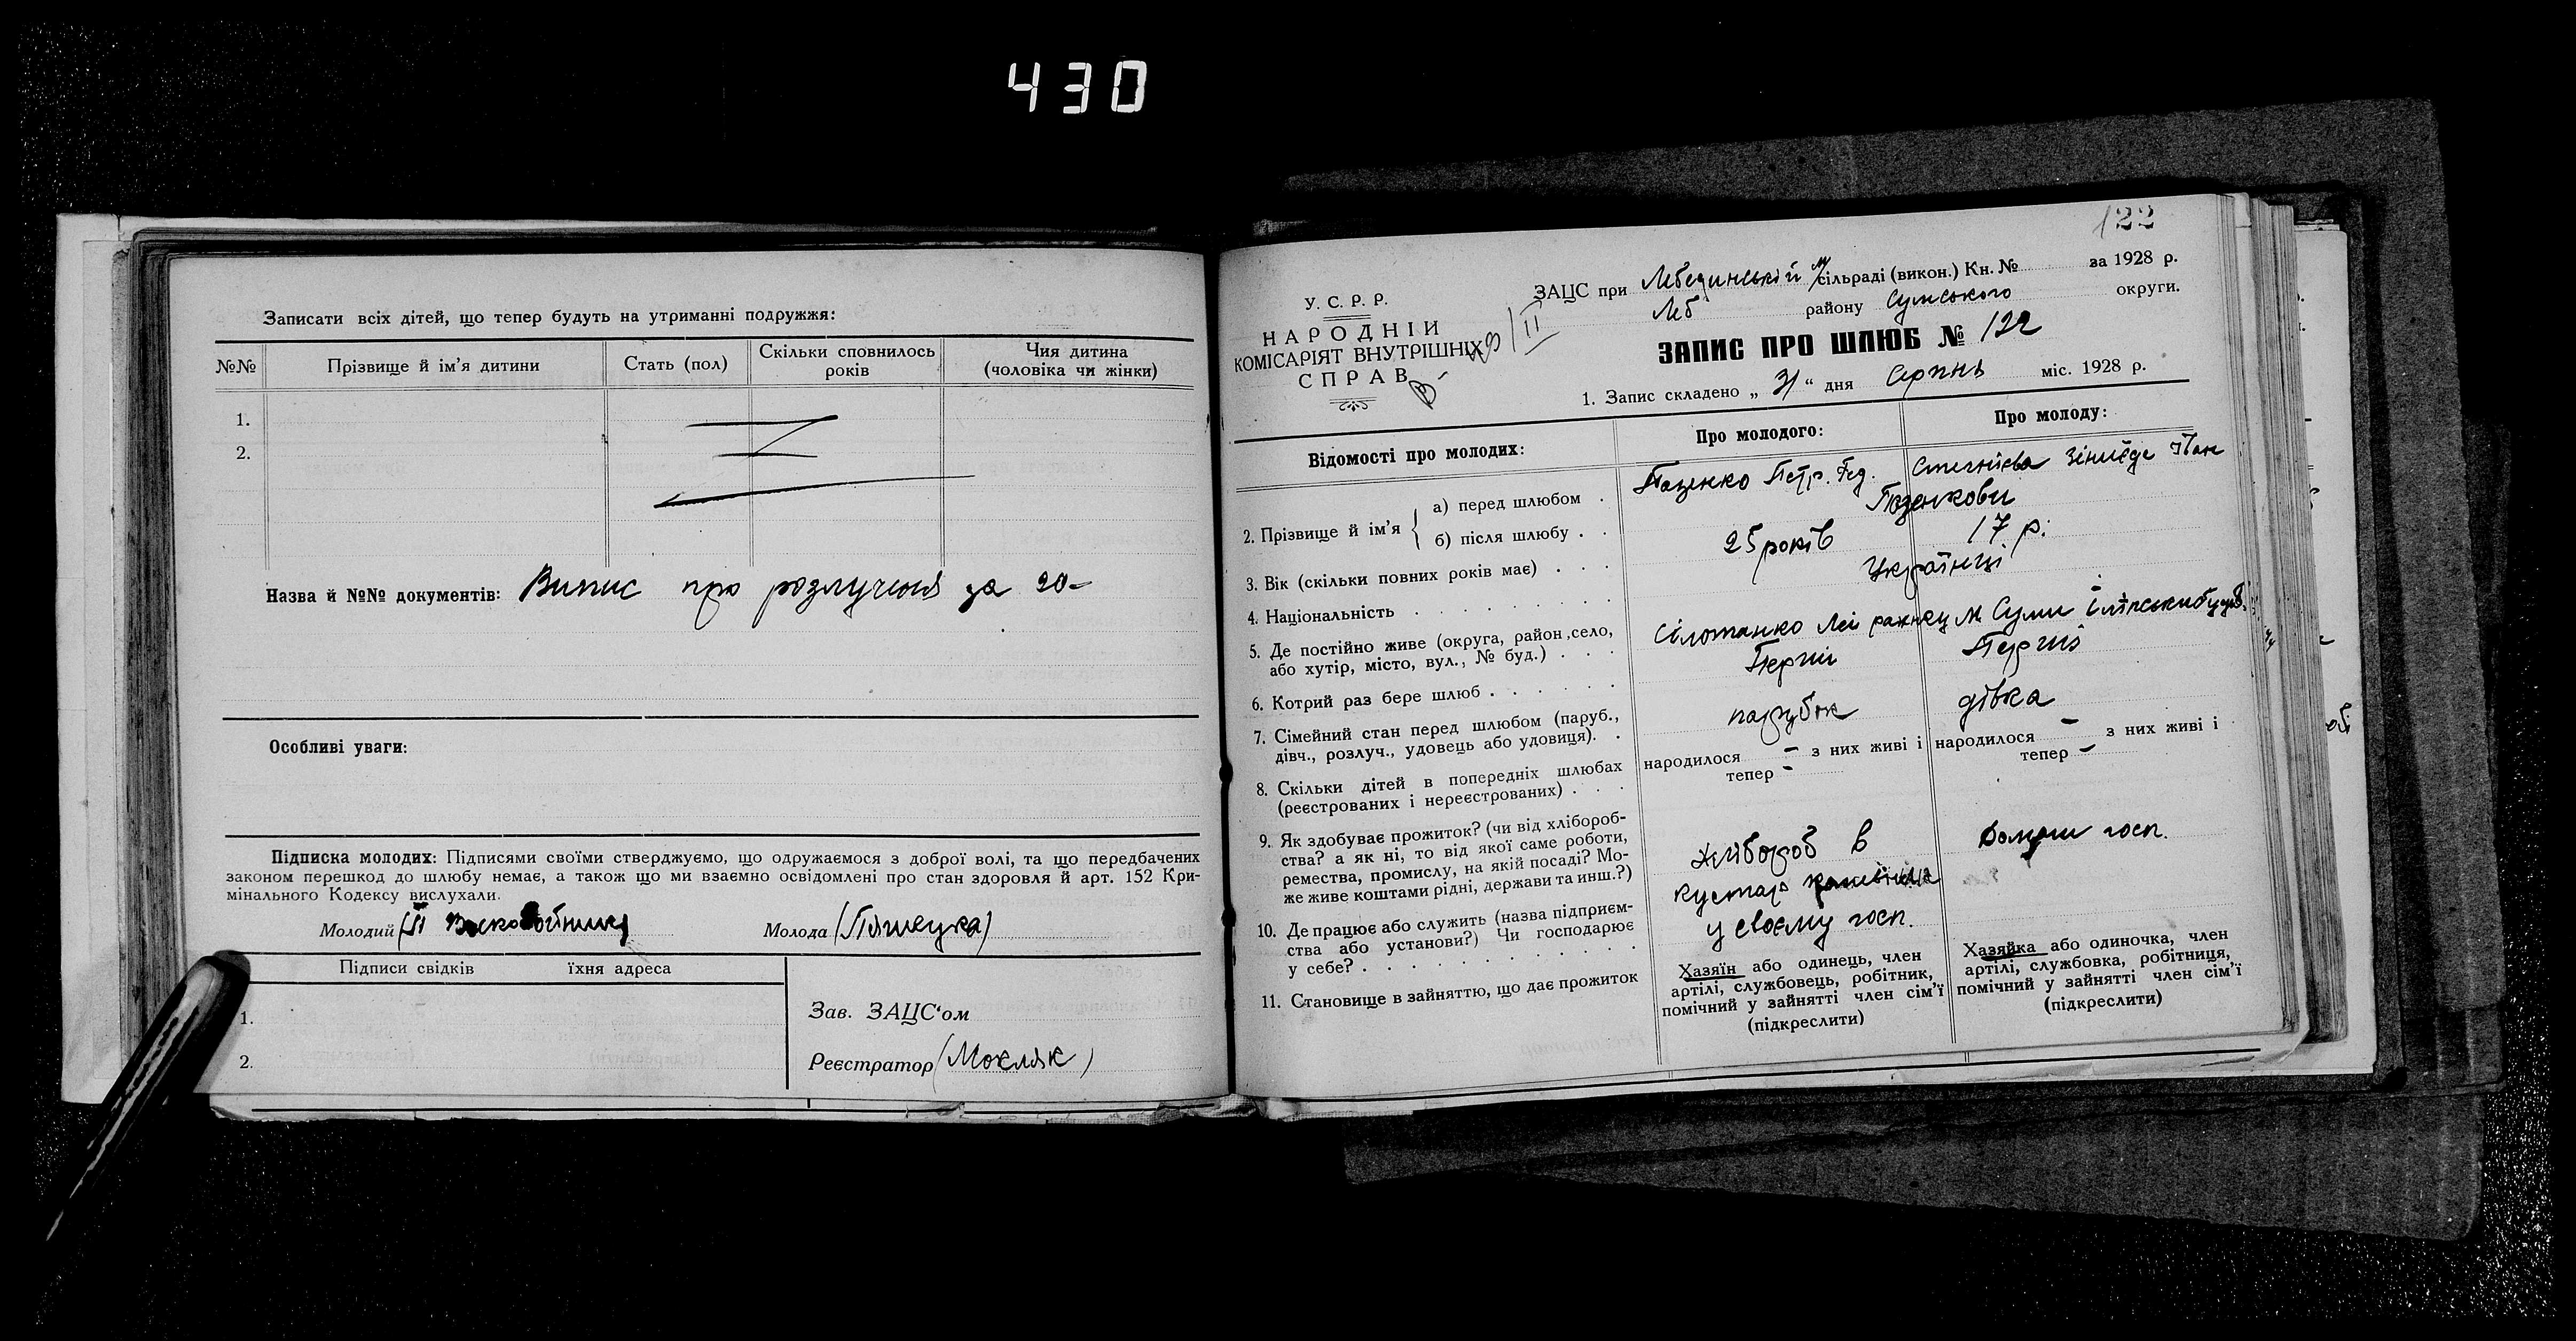 430
Записати всіх дітей, що тепер будуть на утриманні подружжя:
№№
Прізвище й ім'я дитини
Стать (пол)
Скільки сповнилось років
Чия дитина (чоловіка чи жінки)
1.
2.
Назва й №№ документів: Випис про розлучення за 20-
Особливі уваги:
Підписка молодих: Підписями своїми стверджуємо, що одружаємося з доброї волі, та що передбачених
законом перешкод до шлюбу немає, а також що ми взаємно освідомлені про стан здоровля й арт. 152 Кри-
мінального Кодексу вислухали.
Молодий
Молода
Підписи свідків
їхня адреса
1.
2.
Зав. ЗАЦС'ом
Реєстратор (Мокляк)
122
У. С. Р. Р.
НАРОДНІЙ
КОМІСАРІЯТ ВНУТРІШНІХ
СПРАВ
ЗАЦС при Лебединській м сільраді (викон.) Кн. № за 1928 р.
Леб району Сумського округи.
ЗАПИС ПРО ШЛЮБ № 122
1. Запис складено „ 31 “ дня Серпнь міс. 1928 р.
Відомості про молодих:
Про молодого:
Про молоду:
2. Прізвище й ім'я
а) перед шлюбом
Пазенко Петр. Фед.
Іван
б) після шлюбу
Пазенкови
3. Вік (скільки повних років має)
25 років
17 р.
4. Національність
Українці
5. Де постійно живе (округа, район, село,
або хутір, місто, вул., № буд.)
м Суми
6. Котрий раз бере шлюб
Перший
7. Сімейний стан перед шлюбом (паруб.,
дівч., розлуч., удовець або удовиця).
парубок
дівка
8. Скільки дітей в попередніх шлюбах
(реєстрованих і нереєстрованих)
народилося - з них живі і
тепер -
народилося - з них живі і
тепер -
9. Як здобуває прожиток? (чи від хлібороб-
ства? а як ні, то від якої саме роботи,
ремества, промислу, на якій посаді? Мо-
же живе коштами рідні, держави та инш.?)
хлібороб в
кустар
Домаш госп.
10. Де працює або служить (назва підприєм-
ства або установи?) Чи господарює
у себе?
у своєму госп.
11. Становище в зайняттю, що дає прожиток
Хазяїн або одинець, член
артілі, службовець, робітник,
помічний у зайнятті член сім'ї
(підкреслити)
Хазяйка або одиночка, член
артілі, службовка, робітниця,
помічний у зайнятті член сім'ї
(підкреслити)